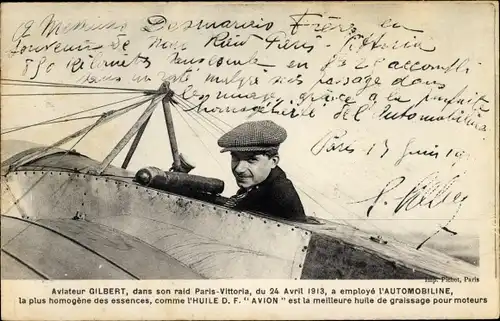 A Messieurs Desmarais Frères en
souvenir de mon Raid Paris-Vittoria
850 Kilomètres accompli
malgré passage dans
grâce à la parfaite
homogénéité de l'Automobiline
Paris 17 juin 19
Aviateur GILBERT, dans son raid Paris-Vittoria, du 24 Avril 1913, a employé l'AUTOMOBILINE,
la plus homogène des essences, comme l'HUILE D. F. "AVION" est la meilleure huile de graissage pour moteurs
Imp. Pichot, Paris